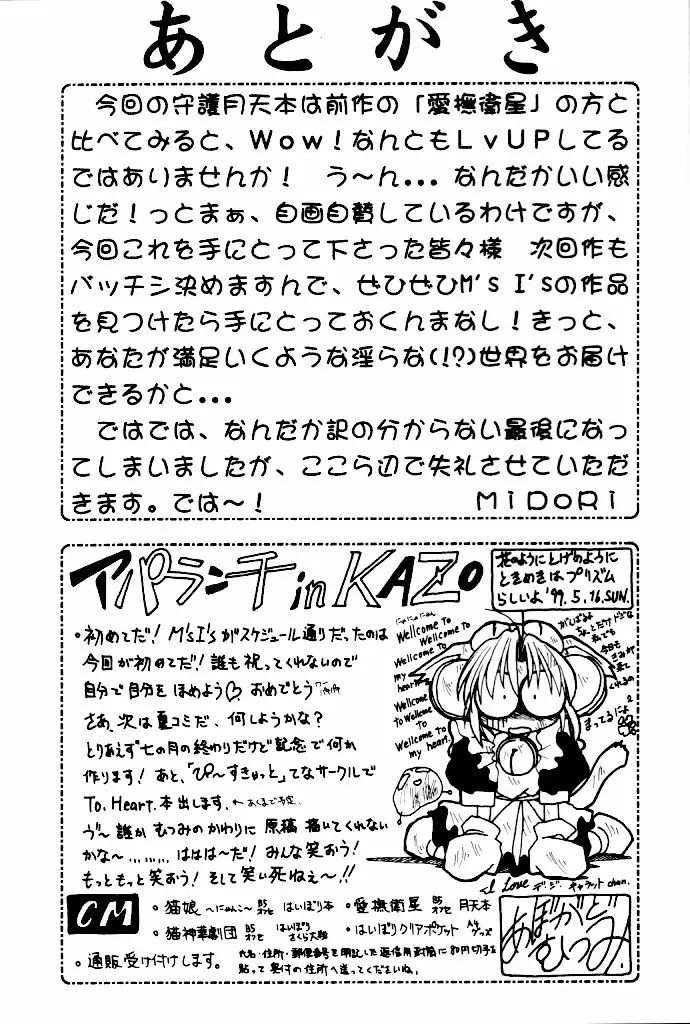 あとがき
　今回の守護月天本は前作の「愛撫衛星」の方と
比べてみると、Wow！なんともLvUPしてる
ではありませんか！　う～ん...なんだかいい感
じだ！っとまぁ、自画自賛しているわけですが、
今回これを手にとって下さった皆々様　次回作も
バッチシ決めますんで、ぜひぜひM's I'sの作品
を見つけたら手にとっておくんまなし！きっと、
あなたが満足いくような淫らな(!?)世界をお届け
できるかと...
　ではでは、なんだか訳の分からない最後になっ
てしまいましたが、ここら辺で失礼させていただ
きます。では～！　MiDORi
アパランチ in KAZo
花のようにとげのように
ときめきはプリズム
らしいよ '99.5.16.SUN.
・初めてだ! M's I's がスケジュール通りだったのは
今回が初めてだ! 誰も祝ってくれないので
自分で自分をほめよう♡ おめでとう
さあ、次は夏コミだ、何しようかな?
とりあえず七の月の終わりだけど記念で何か
作ります! あと、「ぴ～すきゅっと」てなサークルで
To.Heart.本出します. ←あくまで予定.
ヴ～ 誰か むつみのかわりに 原稿 描いてくれない
かな～ ......... ははは～だ! みんな笑おう!
もっともっと笑おう! そして笑い死ねぇ～!!
Welcome To
Welcome To
Welcome To
my heart
Welcome
To Welcome
To
Welcome To
my heart.
がんばるよ
ちょとだけドジな
私でも
今日も
きみが
来て
くれるの
まってるにょ
I Love デ・ジ・キャラット chan.
CM
・猫娘 ～にゃんこ～ B5オフセ はいぱり本
・愛撫衛星 B5オフセ 月天本
・猫神華劇団 B5オフセ はいぱり さくら大戦
・はいぱりクリアポケット A4グッズ
・通販受け付けします。
氏名・住所・郵便番号を明記した返信用封筒に80円切手を
貼って奥付の住所へ送ってくださいね.
あぼがど
むつみ